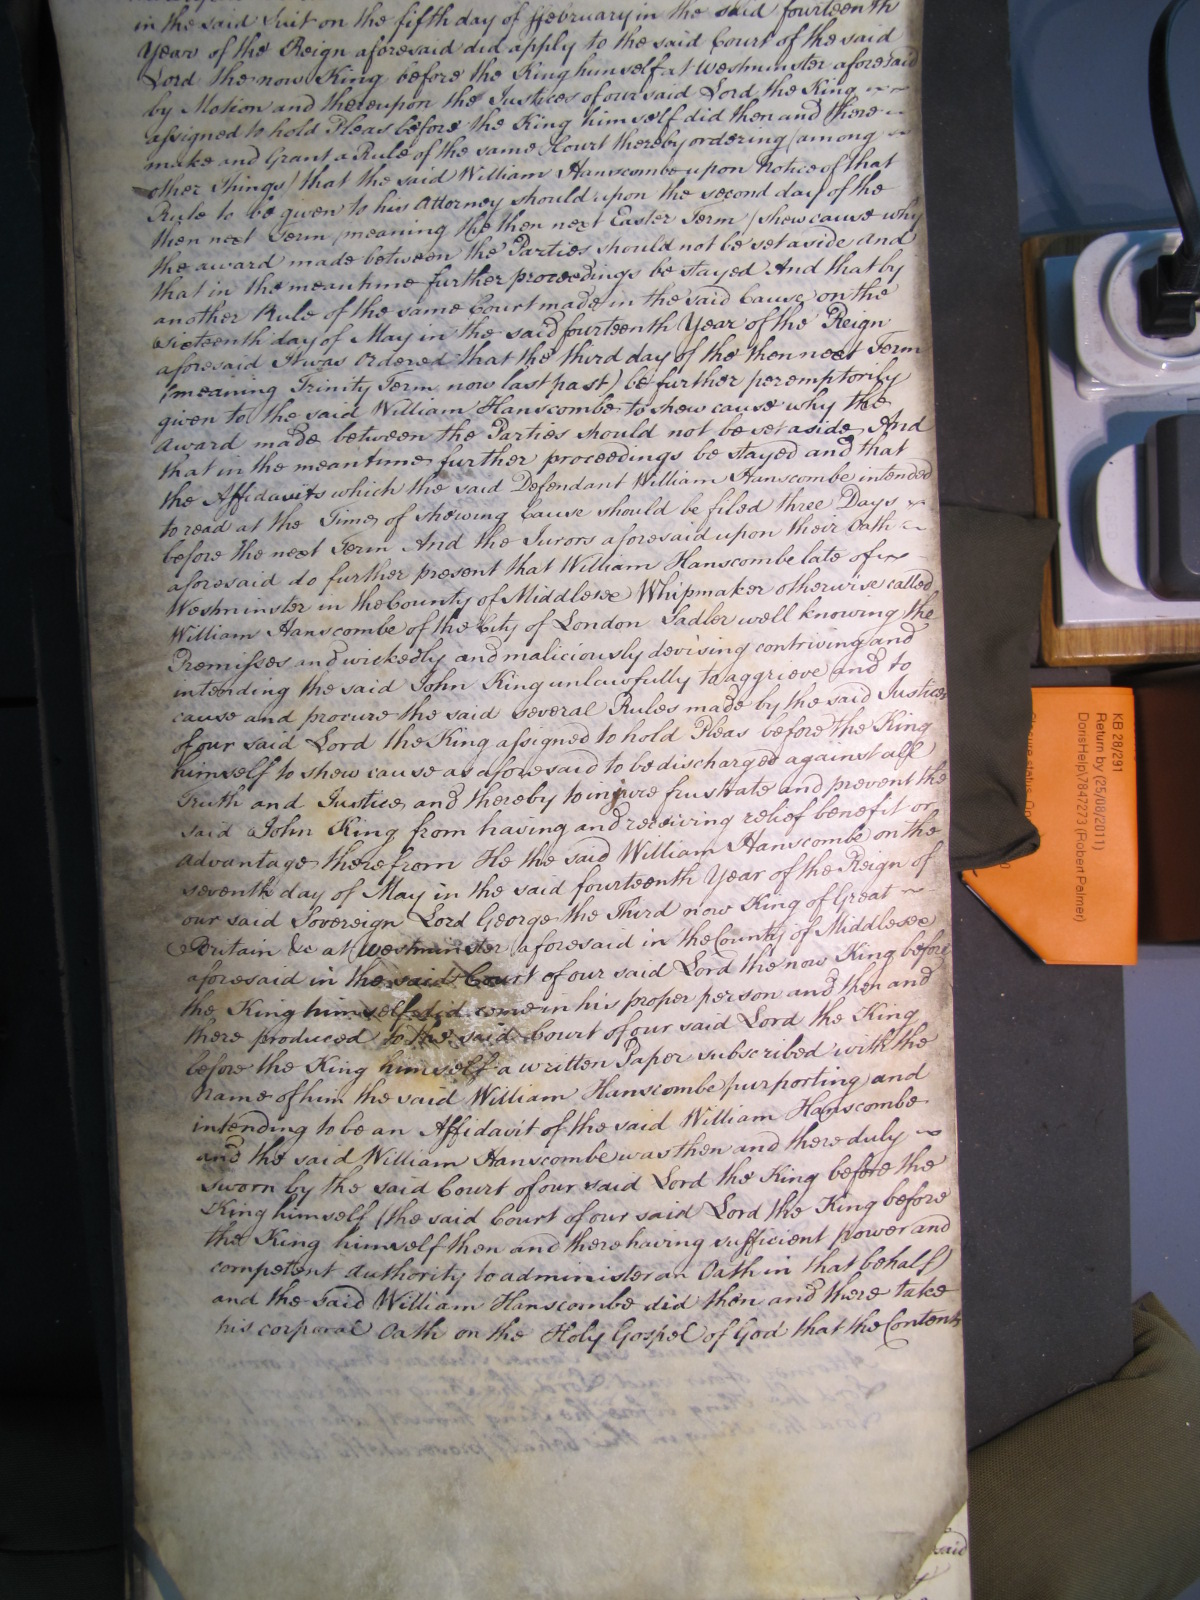 in the said Suit on the fifth day of ffebruary in the said fourteenth
Year of the Reign aforesaid did apply to the said Court of the said
Lord the now King before the King himself at Westminster aforesaid
by Motion and thereupon the Justices of our said Lord the King
assigned to hold Pleas before the King himself did then and there
make and Grant a Rule of the same Court thereby ordering (among
other Things) that the said William Hanscombe upon Notice of that
Rule to be given to his Attorney should upon the second day of the
then next Term (meaning the then next Easter Term) shew cause why
the award made between the Parties should not be set aside and
that in the mean time further proceedings be stayed And that by
another Rule of the same Court made in the said Cause on the
sixteenth day of May in the said fourteenth Year of the Reign
aforesaid It was Ordered that the third day of the then next Term
(meaning Trinity Term now last past) be further peremptorily
given to the said William Hanscombe to shew cause why the
Award made between the Parties should not be set aside And
that in the mean time further proceedings be stayed and that
the Affidavits which the said Defendant William Hanscombe intended
to read at the Time of shewing Cause should be filed three Days
before the next Term And the Jurors aforesaid upon their Oath
aforesaid do further present that William Hanscombe late of
Westminster in the County of Middlesex Whipmaker otherwise called
William Hanscombe of the City of London Sadler well knowing the
Premisses and wickedly and maliciously devising contriving and
intending the said John King unlawfully to aggrieve and to
cause and procure the said several Rules made by the said Justices
of our said Lord the King assigned to hold Pleas before the King
himself to shew cause as aforesaid to be discharged against all
Truth and Justice and thereby to injure frustrate and prevent the
said John King from having and receiving relief benefit or
advantage therefrom He the said William Hanscombe on the
seventh day of May in the said fourteenth Year of the Reign of
our said Sovereign Lord George the Third now King of Great
Britain &c at Westminster aforesaid in the County of Middlesex
aforesaid in the said Court of our said Lord the now King before
the King himself did come in his proper person and then and
there produced to the said Court of our said Lord the King
before the King himself a written Paper subscribed with the
Name of him the said William Hanscombe purporting and
intending to be an Affidavit of the said William Hanscombe
and the said William Hanscombe was then and there duly
sworn by the said Court of our said Lord the King before the
King himself (the said Court of our said Lord the King before
the King himself then and there having sufficient power and
competent Authority to administer an Oath in that behalf)
and the said William Hanscombe did then and there take
his corporal Oath on the Holy Gospel of God that the Contents
said
KB 28/291
Return by (25/08/2011)
DorisHelp\7847273 (Robert Palmer)